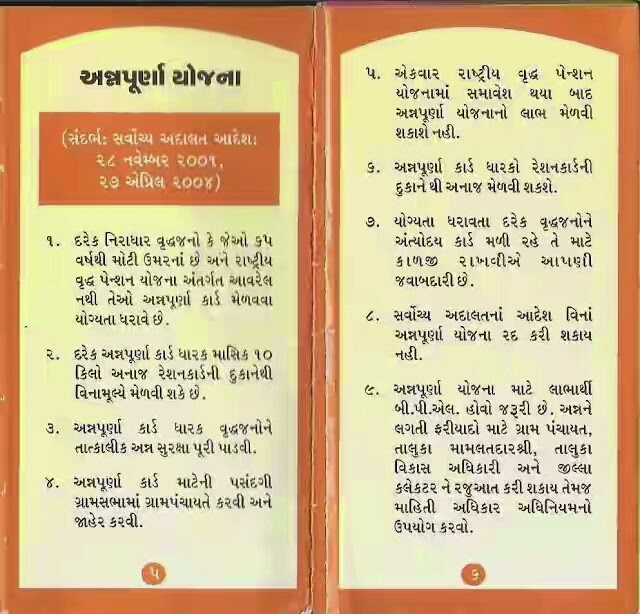 અન્નપૂર્ણા યોજના
(સંદર્ભ: સર્વોચ્ય અદાલત આદેશ:
૨૮ નવેમ્બર ૨૦૦૧,
૨૭ એપ્રિલ ૨૦૦૪)
૧. દરેક નિરાધાર વૃદ્ધજનો કે જેઓ ૬૫
વર્ષથી મોટી ઉમરનાં છે અને રાષ્ટ્રીય
વૃદ્ધ પેન્શન યોજના અંતર્ગત આવરેલ
નથી તેઓ અન્નપૂર્ણા કાર્ડ મેળવવા
યોગ્યતા ધરાવે છે.
૨. દરેક અન્નપૂર્ણા કાર્ડ ધારક માસિક ૧૦
કિલો અનાજ રેશનકાર્ડની દુકાનેથી
વિનામૂલ્યે મેળવી શકે છે.
૩. અન્નપૂર્ણા કાર્ડ ધારક વૃદ્ધજનોને
તાત્કાલીક અન્ન સુરક્ષા પૂરી પાડવી.
૪. અન્નપૂર્ણા કાર્ડ માટેની પસંદગી
ગ્રામસભામાં ગ્રામપંચાયતે કરવી અને
જાહેર કરવી.
૫
૫. એકવાર રાષ્ટ્રીય વૃદ્ધ પેન્શન
યોજનામાં સમાવેશ થયા બાદ
અન્નપૂર્ણા યોજનાનો લાભ મેળવી
શકાશે નહી.
૬. અન્નપૂર્ણા કાર્ડ ધારકો રેશનકાર્ડની
દુકાને થી અનાજ મેળવી શકશે.
૭. યોગ્યતા ધરાવતા દરેક વૃદ્ધજનોને
અંત્યોદય કાર્ડ મળી રહે તે માટે
કાળજી રાખવીએ આપણી
જવાબદારી છે.
૮. સર્વોચ્ય અદાલતનાં આદેશ વિનાં
અન્નપૂર્ણા યોજના રદ કરી શકાય
નહી.
૯. અન્નપૂર્ણા યોજના માટે લાભાર્થી
બી.પી.એલ. હોવો જરૂરી છે. અન્નને
લગતી ફરીયાદો માટે ગ્રામ પંચાયત,
તાલુકા મામલતદારશ્રી, તાલુકા
વિકાસ અધિકારી અને જીલ્લા
કલેકટર ને રજુઆત કરી શકાય તેમજ
માહિતી અધિકાર અધિનિયમનો
ઉપયોગ કરવો.
૬